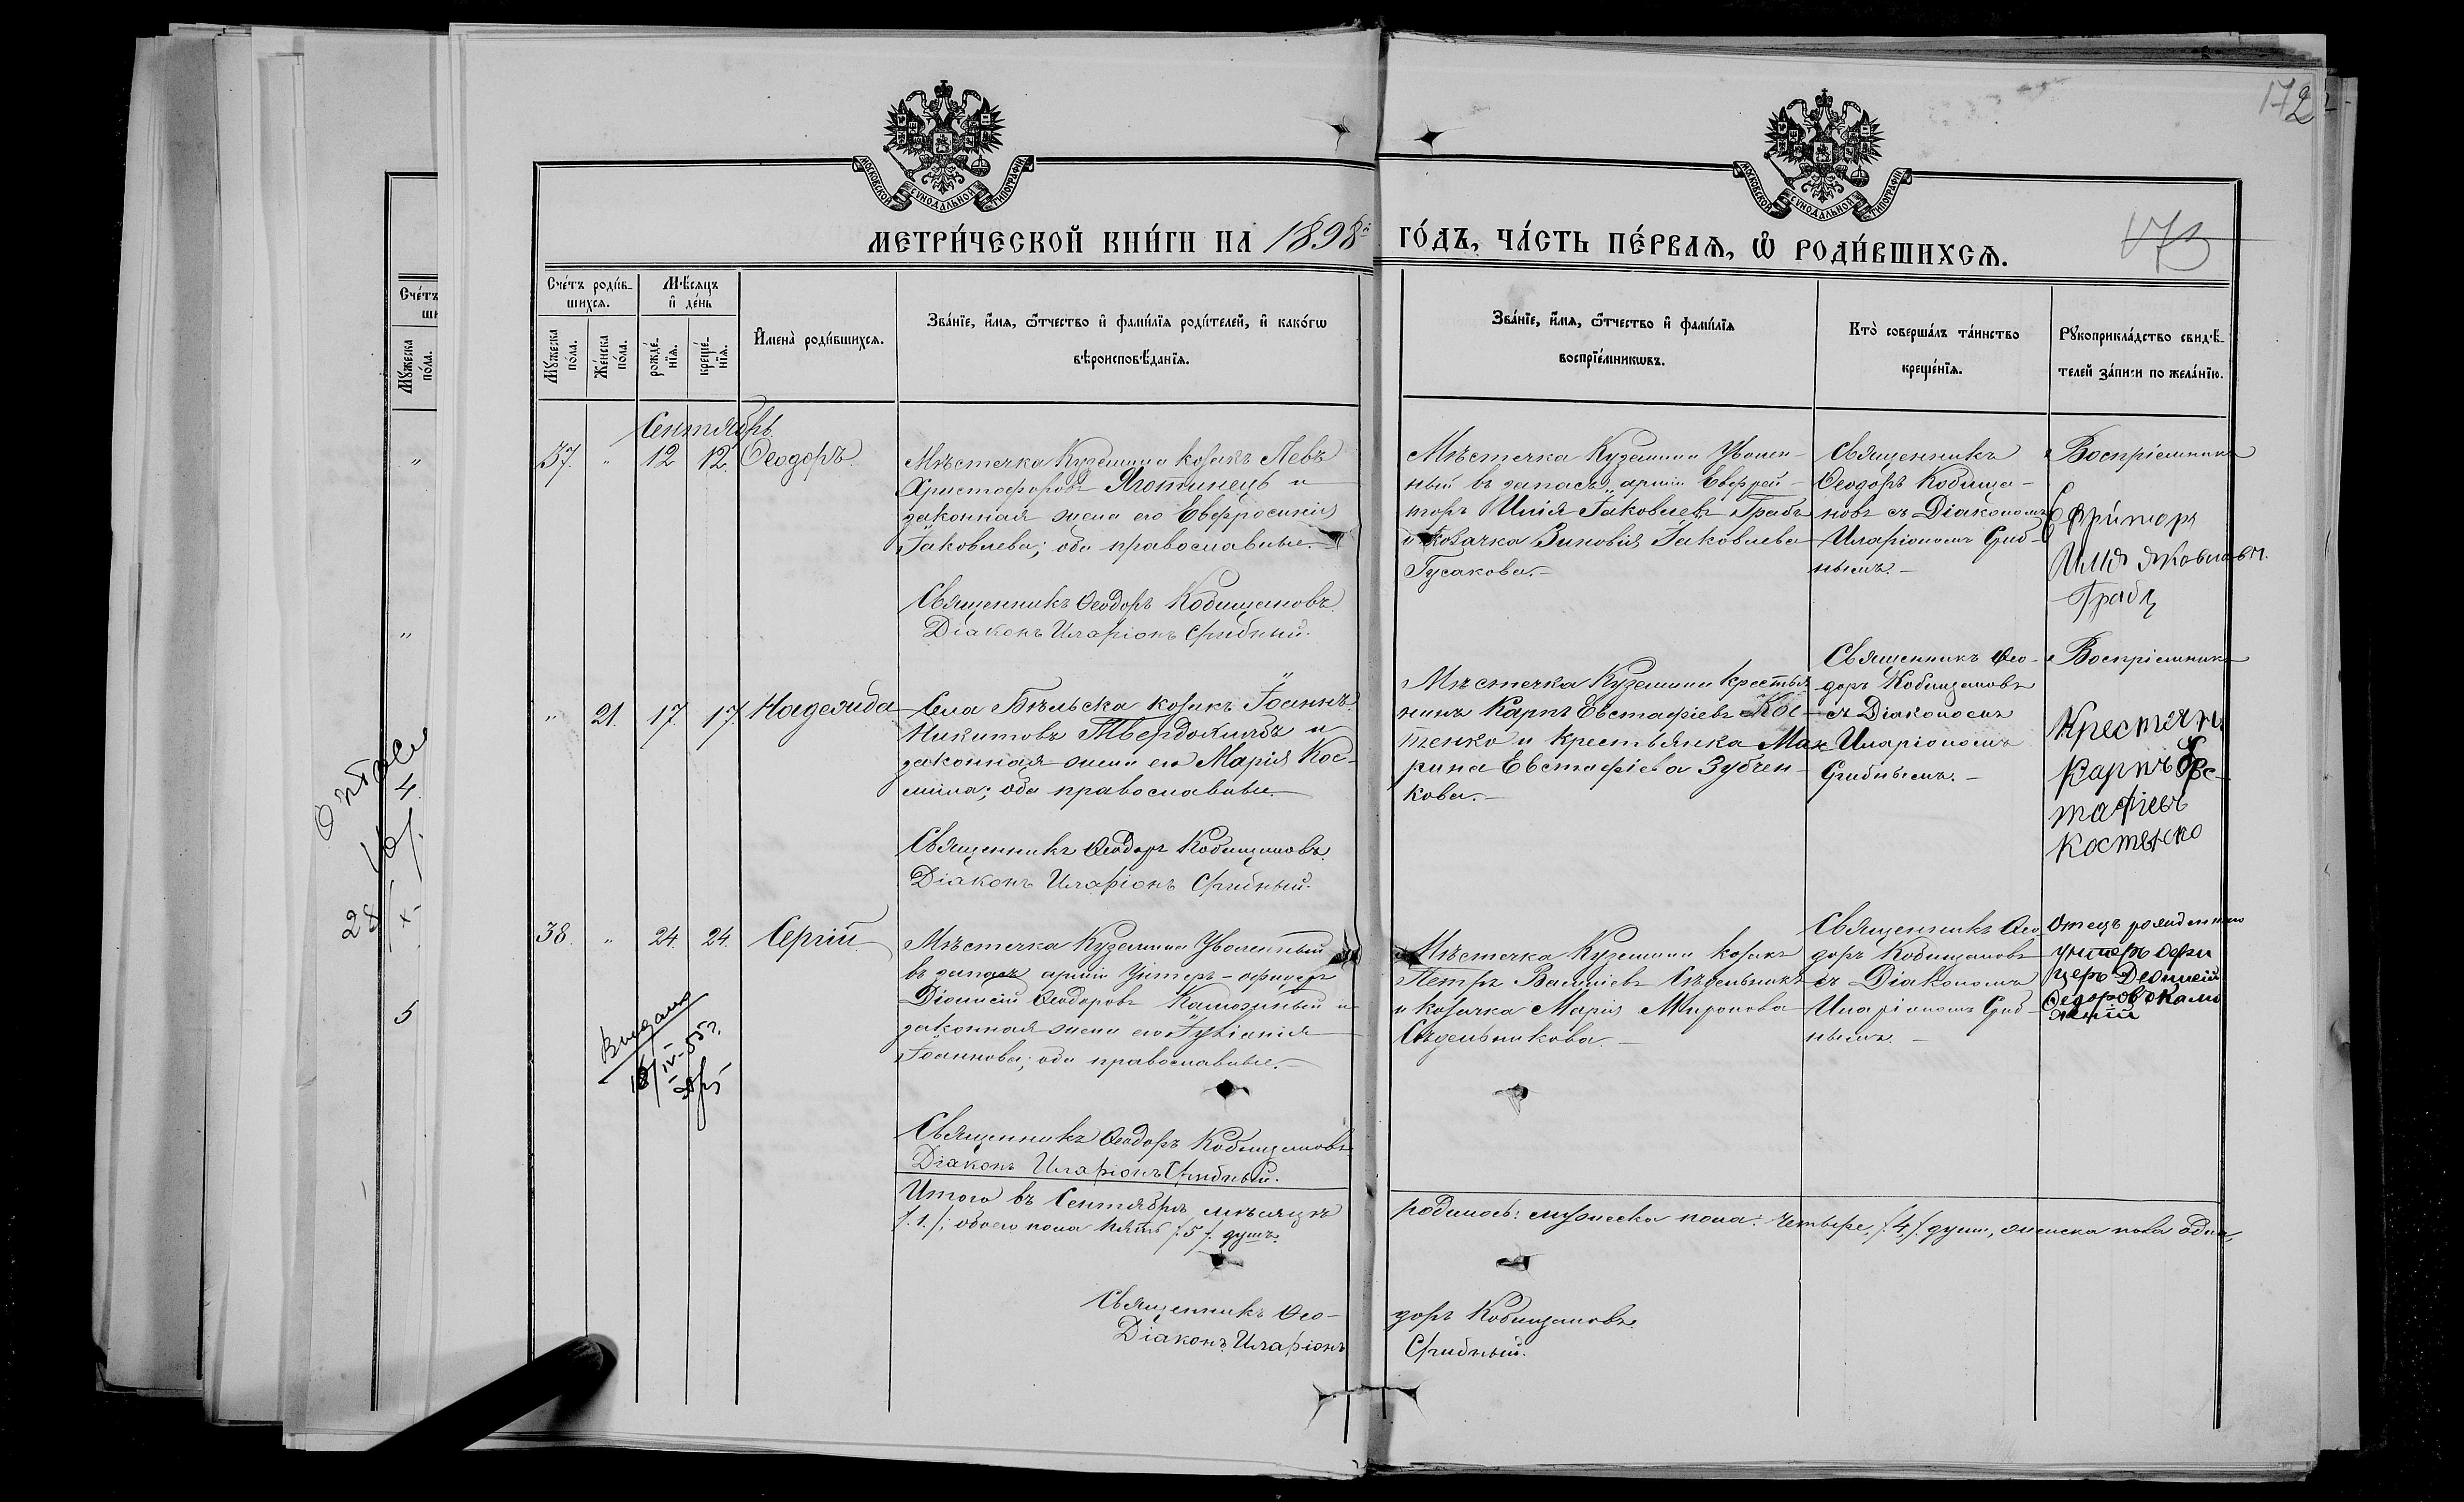 172
173
МОСКОВСКОЙ СѴНОДАЛЬНОЙ ТИПОГРАФІИ
МОСКОВСКОЙ СѴНОДАЛЬНОЙ ТИПОГРАФІИ
МЕТРИ́ЧЕСКОЙ КНИ́ГИ НА 1898й ГО́ДЪ, ЧА́СТЬ ПЕ́РВАѦ, Ѡ҆ РОДИ́ВШИХСѦ.
Сче́тъ роди́в-
шихсѧ.
Мѣ́сѧцъ
и҆ де́нь
Мꙋ́жеска по́ла.
Же́нска по́ла.
рожде́-нїѧ.
креще́-нїѧ.
И҆мена̀ роди́вшихсѧ.
Зва́нїе, и҆́мѧ, ѻ҆́тчество и҆ фами́лїѧ роди́телей, и҆ како́гѡ
вѣроисповѣ́данїѧ.
Зва́нїе, и҆́мѧ, ѻ҆́тчество и҆ фами́лїѧ
воспрїе́мникѡвъ.
Кто̀ соверша́лъ та́инство
креще́нїѧ.
Рꙋкоприкла́дство свидѣ́-
телей за́писи по жела́нїю.
Сентябрь
37. " 12 12. Ѳеодоръ.
Мѣстечка Куземина козакъ Левъ
Христофоровъ Яготинецъ и
законная жена его Евфросинія
Іаковлева; оба православные.
Священникъ Ѳеодоръ Кобищановъ.
Діаконъ Иларіонъ Срибный.
Мѣстечка Куземина Уволен-
ный въ запасъ арміи Ефрей-
торъ Илія Іаковлевъ Грабъ
и козачка Зиновія Іаковлева
Гусакова.
Священникъ
Ѳеодоръ Кобища-
новъ съ Діакономъ
Иларіономъ Сриб-
нымъ.
Воспріемникъ
Ефритор
Илия Яковлевич.
Грабъ
" 21. 17. 17. Надежда
Села Бѣльска козакъ Іоаннъ
Никитовъ Твердохлѣбъ и
законная жена его Марія Кос-
мина; оба православные.
Священникъ Ѳеодоръ Кобищановъ.
Діаконъ Иларіонъ Срибный.
Мѣстечка Куземина крестья-
нинъ Карпъ Евстафіевъ Кос-
тенко и крестьянка Мак-
рина Евстафіева Зубчен-
кова.
Священникъ Ѳео-
доръ Кобищановъ
съ Діакономъ
Иларіономъ
Срибнымъ.
Воспріемникъ
Крестянъ
Карпъ Евс-
тафіевъ
Костенко
38. " 24. 24. Сергій
Мѣстечка Куземина Уволенный
въ запасъ арміи Унтеръ-офицеръ
Діонисій Ѳеодоровъ Камозный и
законная жена его Іуліанія
Іоаннова; оба православные.
Священникъ Ѳеодоръ Кобищановъ
Діаконъ Иларіонъ Срибный.
Мѣстечка Куземина козакъ
Петръ Василіевъ Сѣдельникъ
и козачка Марія Миронова
Сѣдельникова.
Священникъ Ѳео-
доръ Кобищановъ
съ Діакономъ
Иларіономъ Сриб-
нымъ.
Отецъ рожденнаго
унтеръ офи
церъ Деонисій
Федоровъ Камо
зный
Выдано
16/IV-55г.
Итого въ Сентябрѣ мѣсяцѣ родилось: мужеска пола: четыре, /.4./ души, женска пола одна,
/.1./; обоего пола пять /.5./ душъ.
Священникъ Ѳео-доръ Кобищановъ.
Діаконъ Иларіонъ Срибный.
Сче́тъ
Мꙋ́жеска по́ла.
"
"
4.
28/X-
5